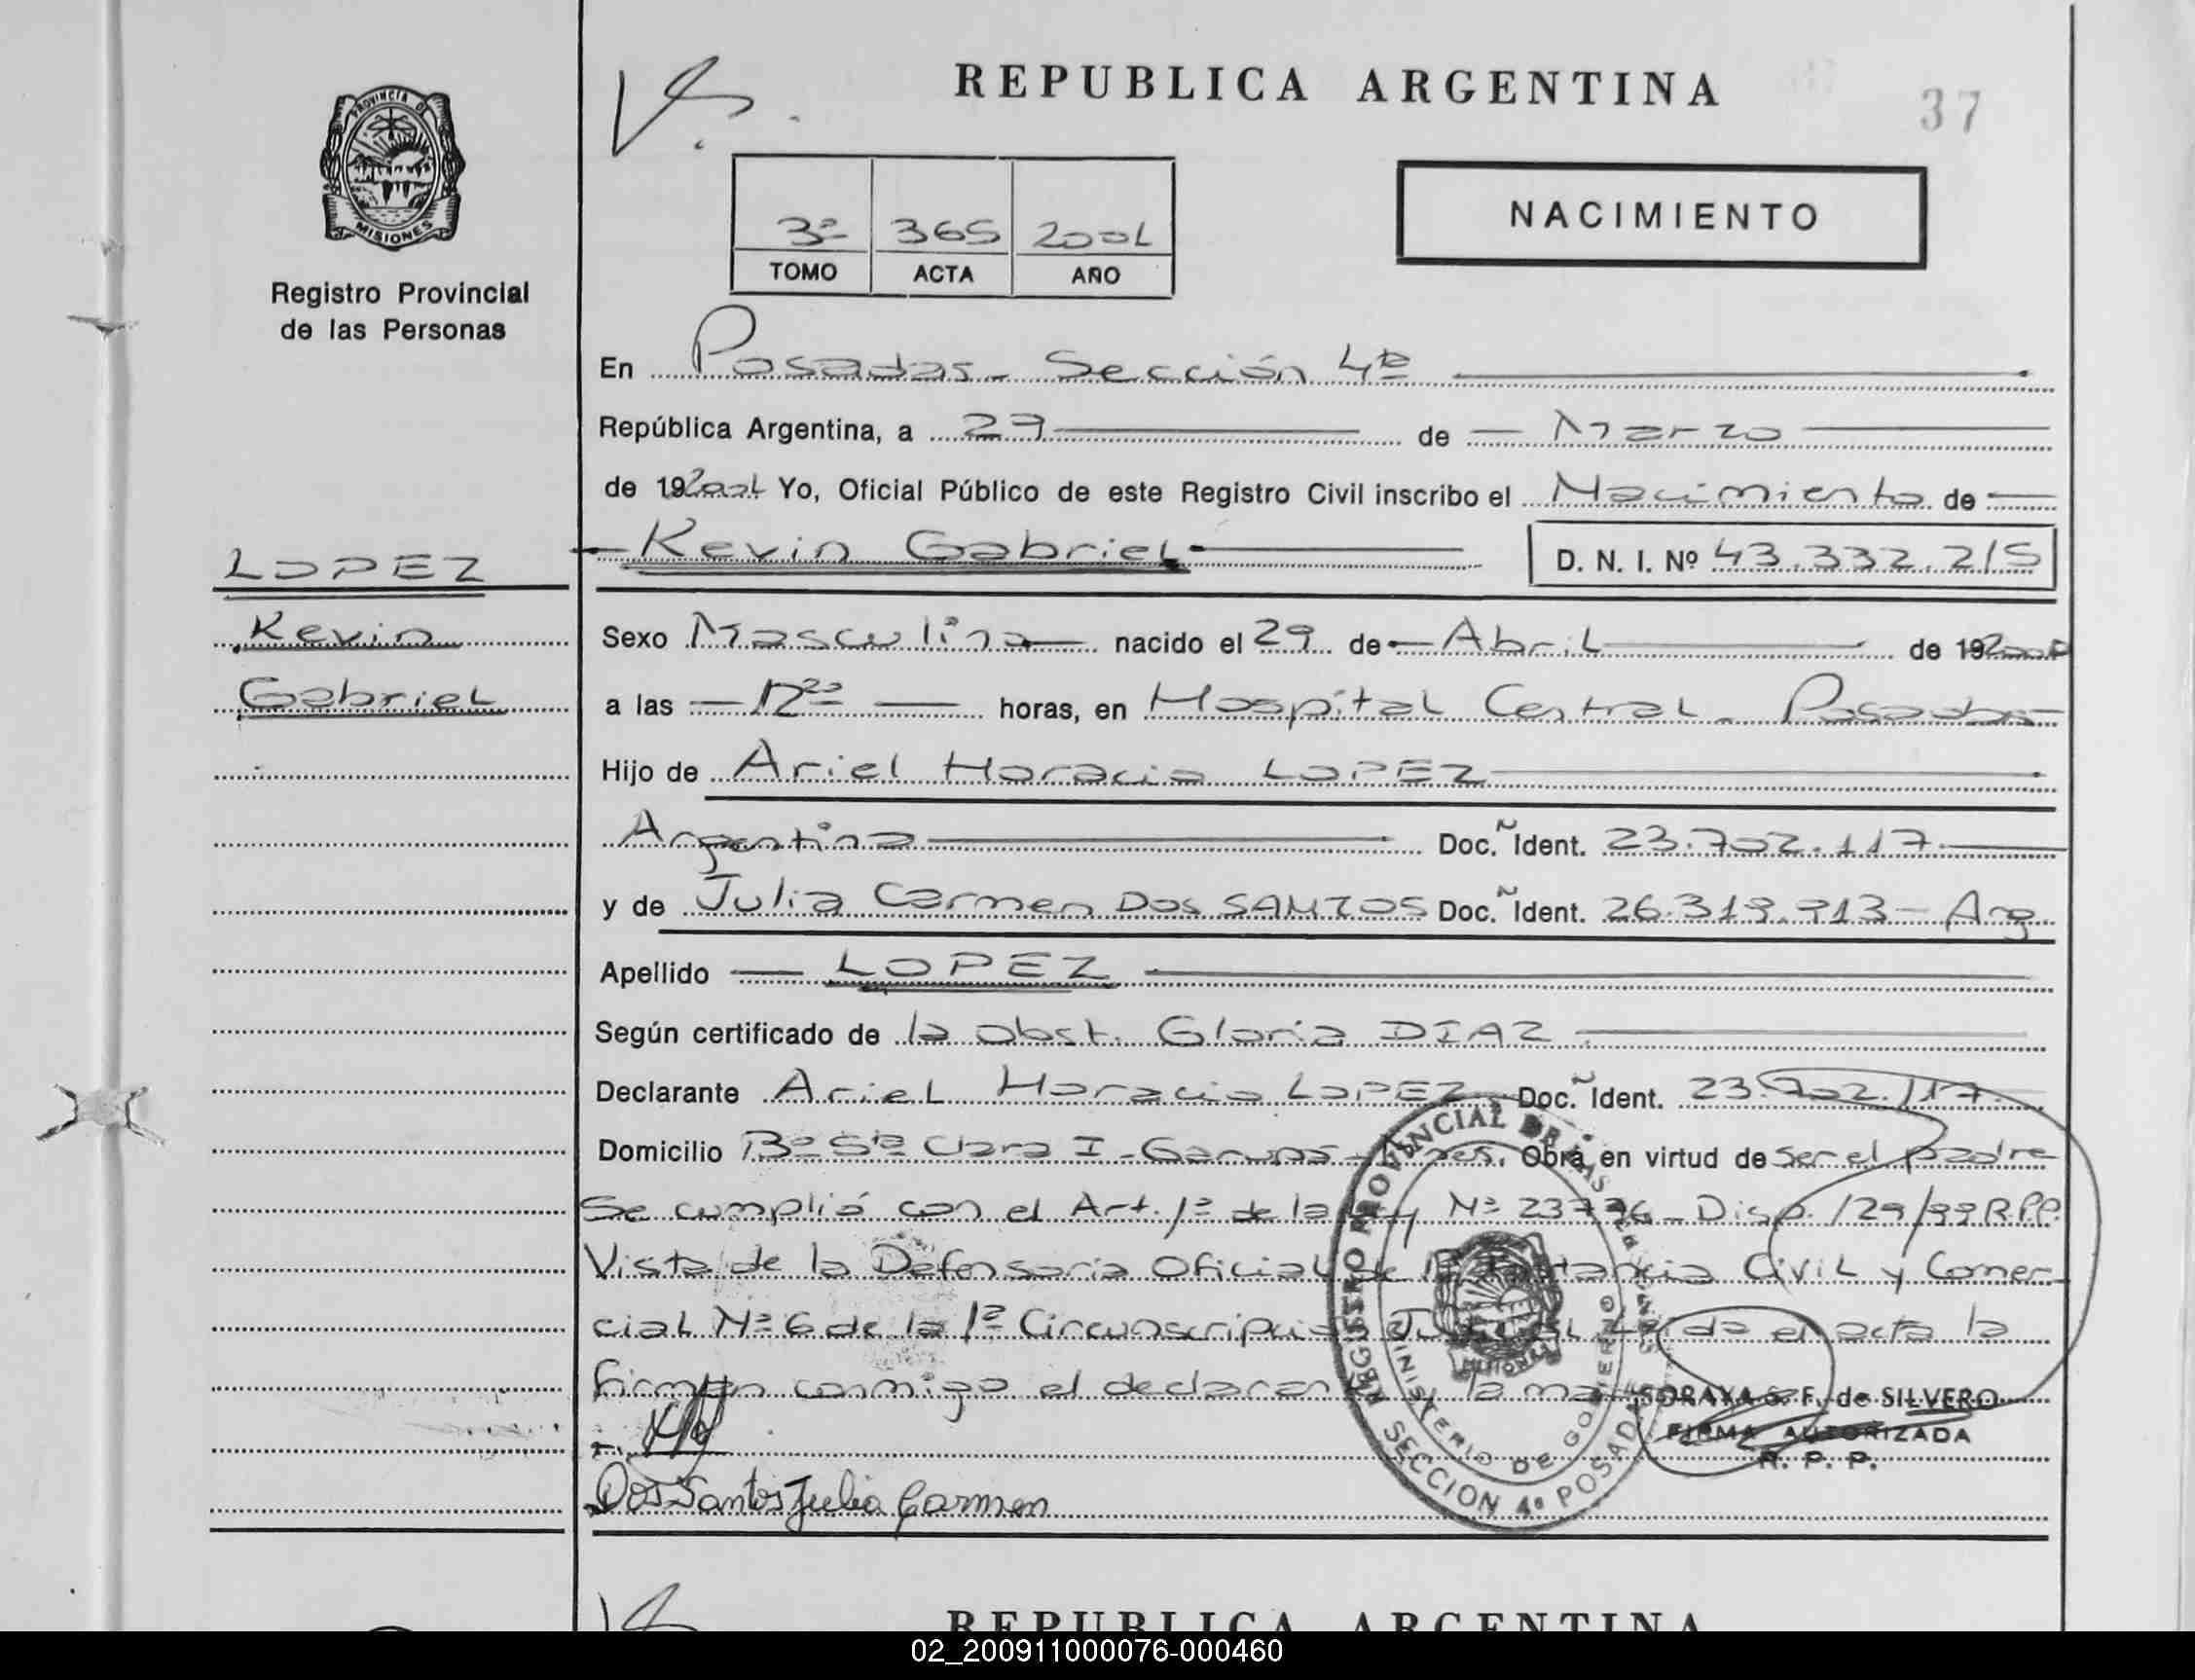 REPUBLICA ARGENTINA
37
PROVINCIA DE
MISIONES
Registro Provincial
de las Personas
3º 365 2001
TOMO ACTA AÑO
NACIMIENTO
En Posadas - Sección 4ta
República Argentina, a 27 de Marzo
de 192001 Yo, Oficial Público de este Registro Civil inscribo el Nacimiento de
Kevin Gabriel D. N. I. Nº 43.332.215
LOPEZ
Kevin
Gabriel
Sexo Masculino nacido el 29 de Abril de 192000
a las 12 horas, en Hospital Central - Posadas
Hijo de Ariel Horacio LOPEZ
Argentina Doc. Ident. 23.702.117
y de Julia Carmen Dos SANTOS Doc. Ident. 26.319.913 - Arg.
Apellido LOPEZ
Según certificado de la obst. Gloria DIAZ
Declarante Ariel Horacio LOPEZ Doc. Ident. 23.702.117
Domicilio Bº Sta Clara I - Garupá - Obra en virtud de ser el padre
Se cumplió con el Art. 1º de la Ley Nº 23776 - Disp. 129/99 R.P.P.
Vista de la Defensoria Oficial de Instancia Civil y Comer-
cial Nº 6 de la 1ª Circunscripción Leida el acta la
firman conmigo el declarante y la
SORAYA S. F. de SILVERO
FIRMA AUTORIZADA
R. P. P.
REGISTRO PROVINCIAL DE LAS
MINISTERIO DE GOBIERNO
SECCION 4ª POSADAS
Dos Santos Julia Carmen
REPUBLICA ARGENTINA
02_200911000076-000460